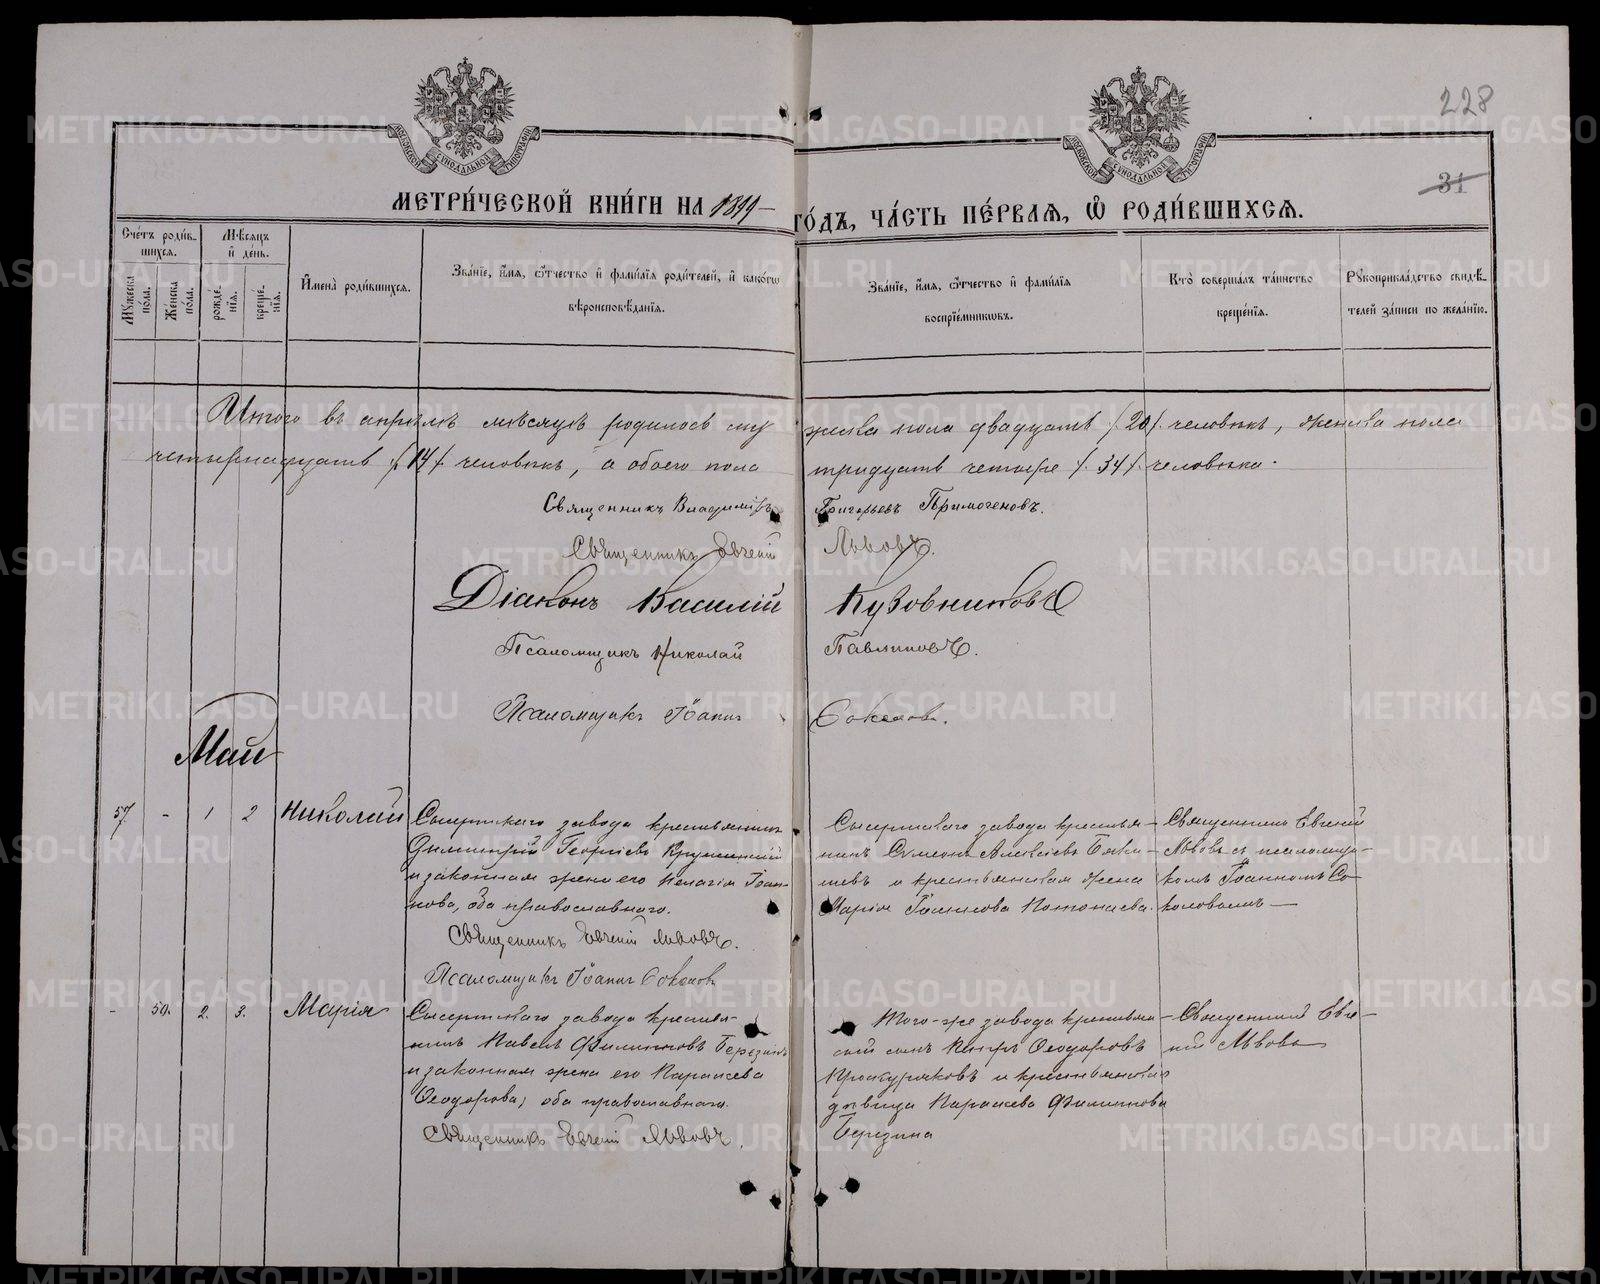 228
31
МОСКОВСКОЙ СѴНОДАЛЬНОЙ ТИПОГРАФІИ
МОСКОВСКОЙ СѴНОДАЛЬНОЙ ТИПОГРАФІИ
МЕТРИ́ЧЕСКОЙ КНИ́ГИ НА 1899 ГО́ДЪ, ЧА́СТЬ ПЕ́РВАѦ, Ѿ РОДИ́ВШИХСѦ.
Сче́тъ роди́в-
шихсѧ.
Мꙋжеска
по́ла.
Же́нска
по́ла.
Мѣ́сѧцъ
и҆ де́нь.
рожде́-
нїѧ.
креще́-
нїѧ.
И҆мена̀ роди́вшихсѧ.
Зва́нїе, и҆́мѧ, ѻ҆́тчество и҆ фами́лїѧ роди́телей, и҆ како́гѡ
вѣроисповѣ́данїѧ.
Зва́нїе, и҆́мѧ, ѻ҆́тчество и҆ фами́лїѧ
воспрїе́мникѡвъ.
Кто̀ соверша́лъ та́инство
креще́нїѧ.
Рꙋкоприкла́дство свидѣ́-
телей за́писи по жела́нїю.
Итого въ апрѣлѣ мѣсяцѣ родилось му жеска пола двадцать /20/ человѣкъ, женска пола
четырнадцать /14/ человѣкъ, а обоего пола тридцать четыре /34/ человѣка.
Священникъ Владимиръ Григорьевъ Примогеновъ.
Священникъ Евгеній Львовъ.
Діаконъ Василій Кузовниковъ
Псаломщикъ Николай Павлиновъ.
Псаломщикъ Іоаннъ Соколовъ.
Май
57. - 1 2 Николай
Сысертскаго завода крестьянинъ
Димитрій Георгіевъ
и законная жена его Пелагія Іоан-
нова, оба православнаго.
Священникъ Евгеній Львовъ.
Псаломщикъ Іоаннъ Соколовъ
Сысертскаго завода крестья-
нинъ Симеонъ Алексіевъ
шевъ и крестьянская жена
Марія
Священникъ Евгеній
Львовъ съ псаломщи-
комъ Іоанномъ Со-
коловымъ
- 50. 2. 3. Марія
Сысертскаго завода крестья-
нинъ Павелъ Филипповъ Березинъ
и законная жена его Параскева
Ѳеодорова, оба православнаго.
Священникъ Евгеній Львовъ.
Того-же завода крестьян-
скій сынъ Петръ Ѳеодоровъ
Проскуряковъ и крестьянская
дѣвица Параскева Филиппова
Березина
Священникъ Евге-
ній Львовъ
METRIKI.GASO-URAL.RU